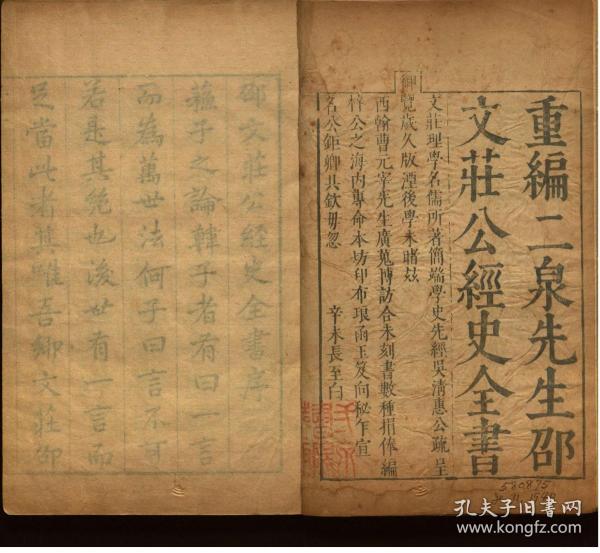 重編二泉先生邵
文莊公經史全書
文莊理學名儒所著簡端學史先經吳淸惠公疏呈
御
覽歲久版湮後學未睹玆
西翰曹元宰先生廣蒐博訪合未刻書數種捐俸編
梓公之海內專命本坊印布琅函玉笈向秘乍宣
名公鉅卿具欽毋忽
辛未長至白
580875
邵文莊公經史全書序
蘓子之論韓子者有曰一言
而為萬世法何子曰言不可
若是其㡬也後世有一言而
足當此者其惟吾鄉文莊邵
孔夫子旧书网
www.kongfz.com